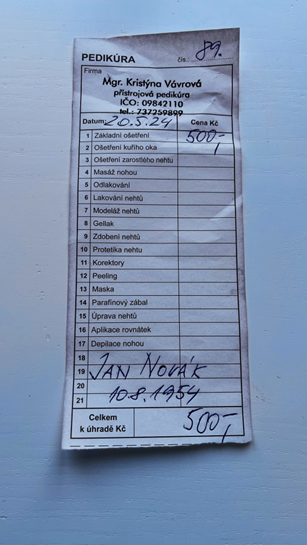 PEDIKÚRA čís. 89.
Firma
Mgr. Kristýna Vávrová
přístrojová pedikúra
IČO: 09842110
tel.: 737259899
Datum: 20.5.24 Cena Kč
1 Základní ošetření 500,-
2 Ošetření kuřího oka
3 Ošetření zarostlého nehtu
4 Masáž nohou
5 Odlakování
6 Lakování nehtů
7 Modeláž nehtů
8 Gellak
9 Zdobení nehtů
10 Protetika nehtu
11 Korektory
12 Peeling
13 Maska
14 Parafínový zábal
15 Úprava nehtů
16 Aplikace rovnátek
17 Depilace nohou
18
19 JAN NOVÁK
20
21 10.8.1954
Celkem
k úhradě Kč 500,-